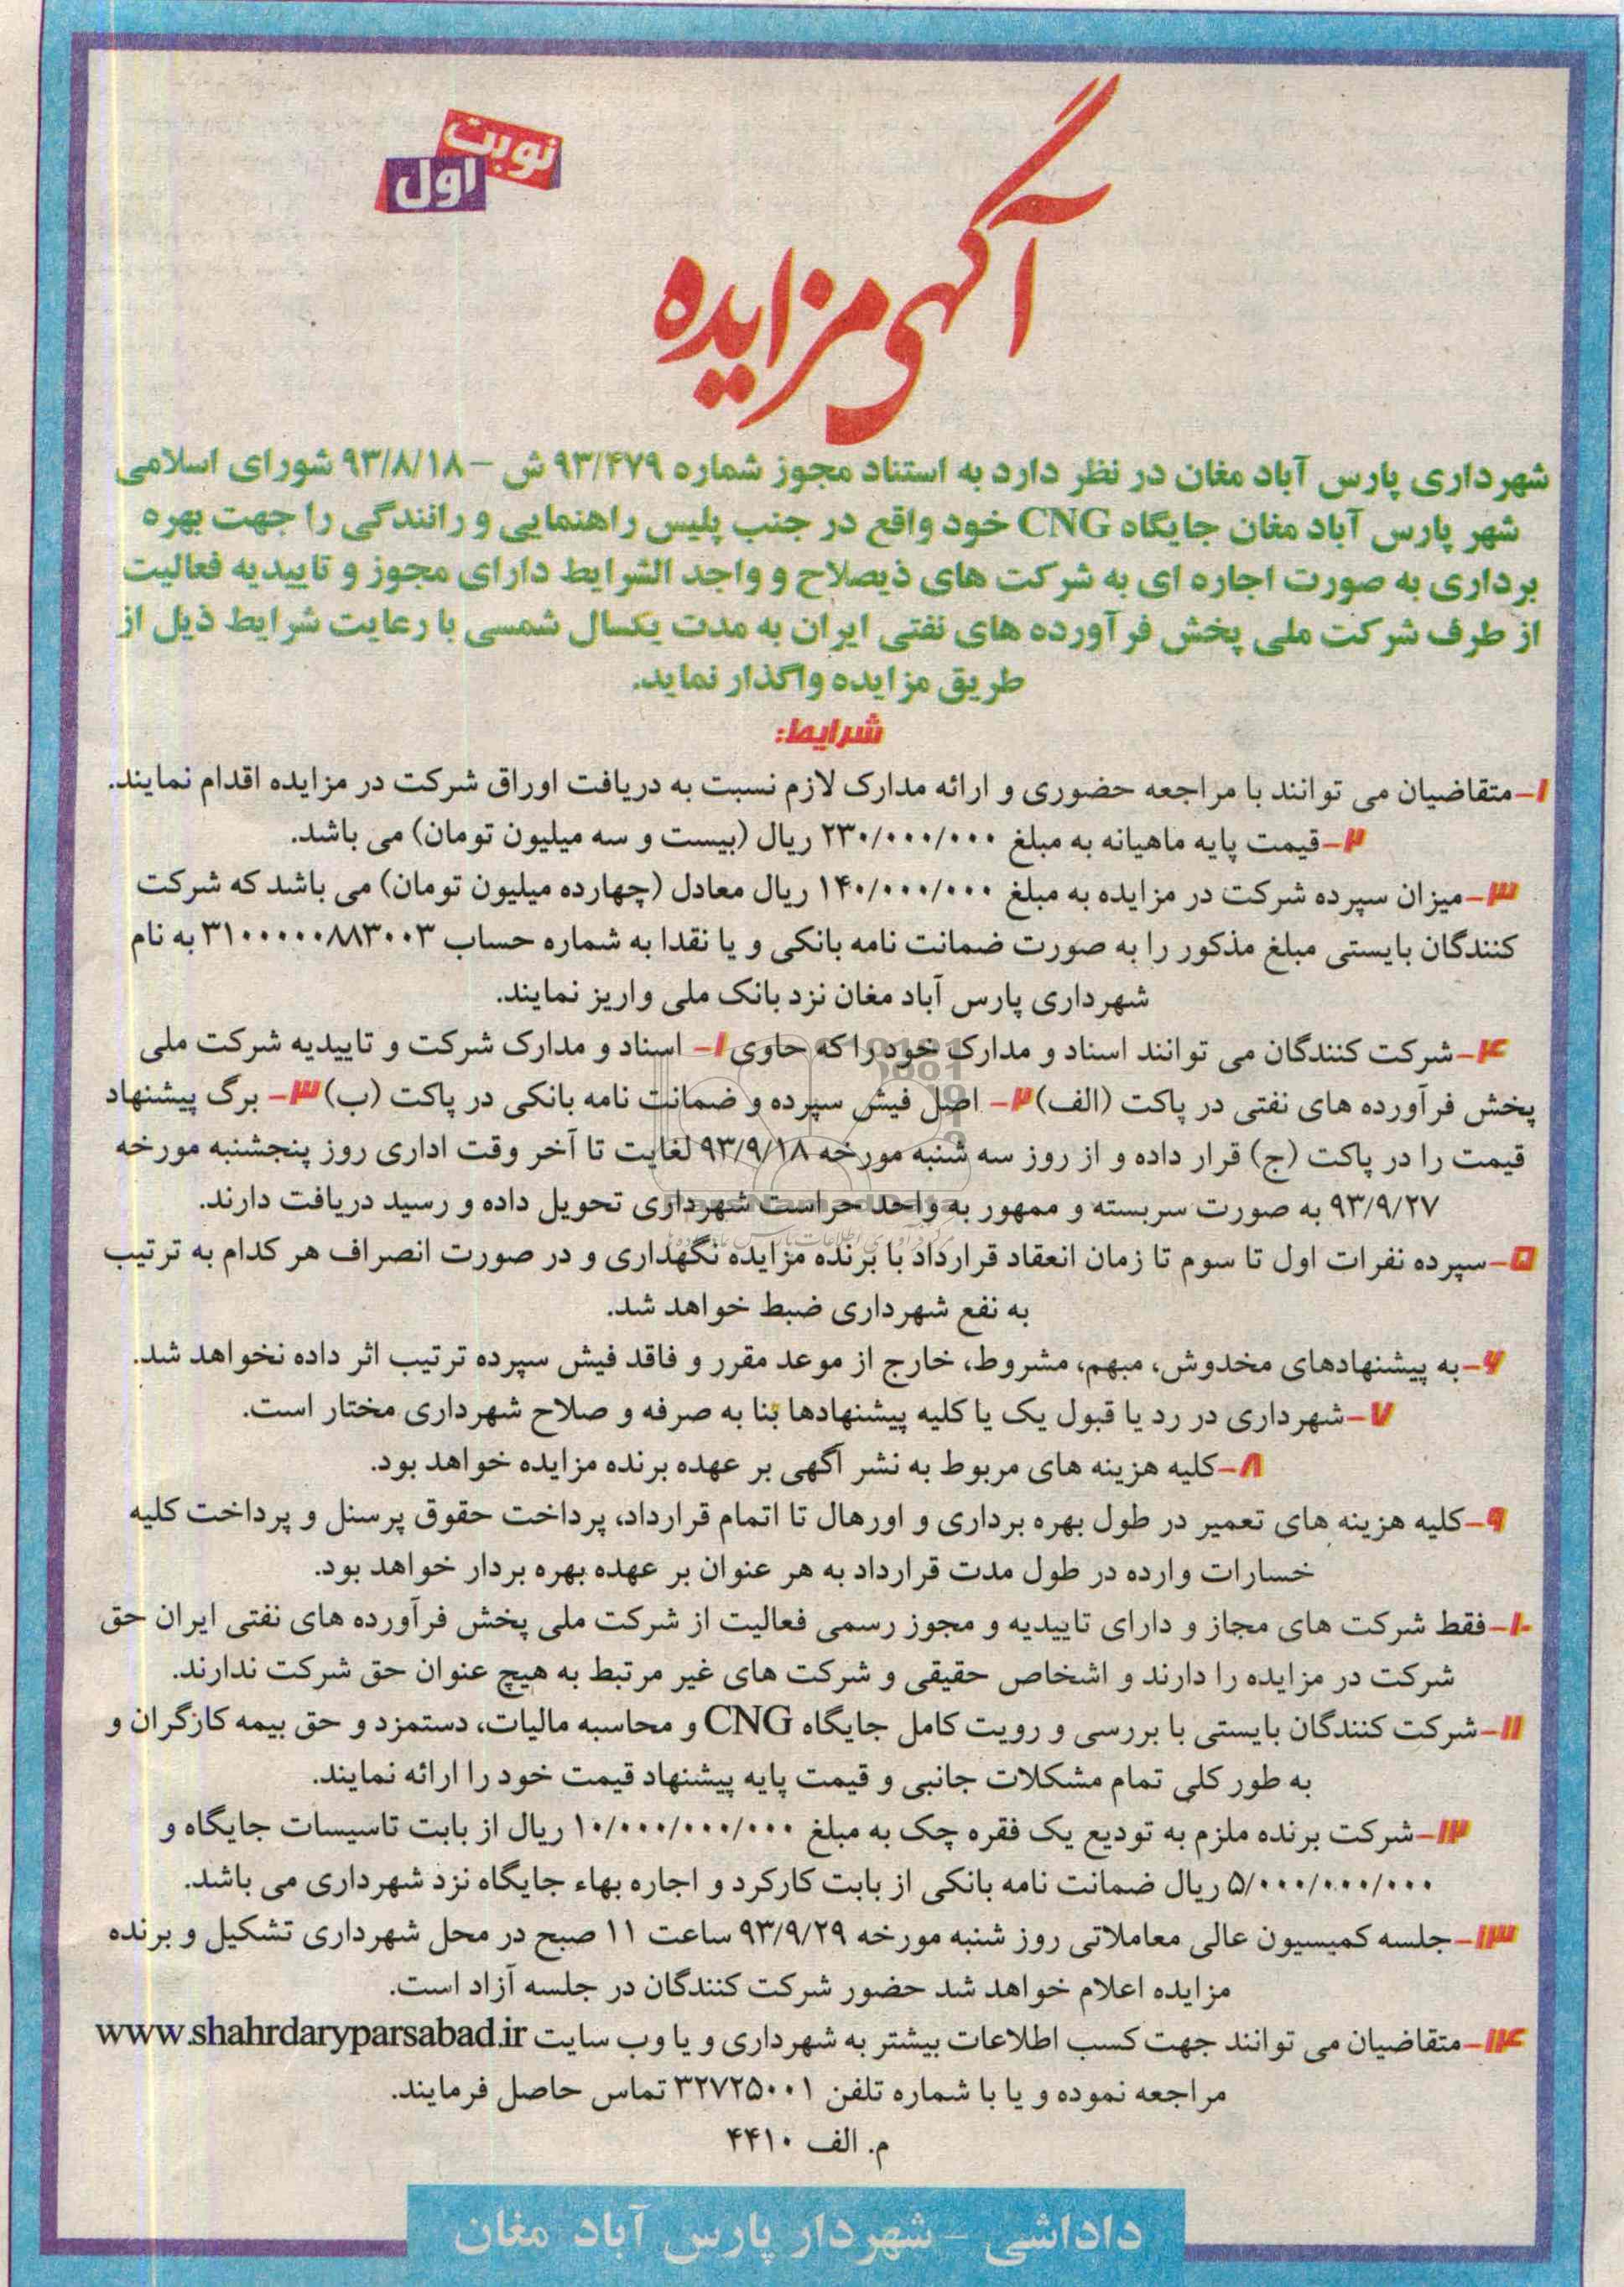 نوبت
اول
آگهی مزایده
شهرداری پارس آباد مغان در نظر دارد به استناد مجوز شماره ۹۳/۴۷۹ ش – ۹۳/۸/۱۸ شورای اسلامی
شهر پارس آباد مغان جایگاه CNG خود واقع در جنب پلیس راهنمایی و رانندگی را جهت بهره
برداری به صورت اجاره ای به شرکت های ذیصلاح و واجد الشرایط دارای مجوز و تاییدیه فعالیت
از طرف شرکت ملی پخش فرآورده های نفتی ایران به مدت یکسال شمسی با رعایت شرایط ذیل از
طریق مزایده واگذار نماید.
شرایط:
۱-متقاضیان می توانند با مراجعه حضوری و ارائه مدارک لازم نسبت به دریافت اوراق شرکت در مزایده اقدام نمایند.
۲-قیمت پایه ماهیانه به مبلغ ۲۳۰/۰۰۰/۰۰۰ ریال (بیست و سه میلیون تومان) می باشد.
۳-میزان سپرده شرکت در مزایده به مبلغ ۱۴۰/۰۰۰/۰۰۰ ریال معادل (چهارده میلیون تومان) می باشد که شرکت
کنندگان بایستی مبلغ مذکور را به صورت ضمانت نامه بانکی و یا نقدا به شماره حساب ۳۱۰۰۰۰۰۸۸۳۰۰۳ به نام
شهرداری پارس آباد مغان نزد بانک ملی واریز نمایند.
۴-شرکت کنندگان می توانند اسناد و مدارک خود را که حاوی ۱- اسناد و مدارک شرکت و تاییدیه شرکت ملی
پخش فرآورده های نفتی در پاکت (الف) ۲- اصل فیش سپرده و ضمانت نامه بانکی در پاکت (ب) ۳- برگ پیشنهاد
قیمت را در پاکت (ج) قرار داده و از روز سه شنبه مورخه ۹۳/۹/۱۸ لغایت تا آخر وقت اداری روز پنجشنبه مورخه
۹۳/۹/۲۷ به صورت سربسته و ممهور به واحد حراست شهرداری تحویل داده و رسید دریافت دارند.
۵-سپرده نفرات اول تا سوم تا زمان انعقاد قرارداد با برنده مزایده نگهداری و در صورت انصراف هر کدام به ترتیب
به نفع شهرداری ضبط خواهد شد.
۶-به پیشنهادهای مخدوش، مبهم، مشروط، خارج از موعد مقرر و فاقد فیش سپرده ترتیب اثر داده نخواهد شد.
۷-شهرداری در رد یا قبول یک یا کلیه پیشنهادها بنا به صرفه و صلاح شهرداری مختار است.
۸-کلیه هزینه های مربوط به نشر آگهی بر عهده برنده مزایده خواهد بود.
۹-کلیه هزینه های تعمیر در طول بهره برداری و اورهال تا اتمام قرارداد، پرداخت حقوق پرسنل و پرداخت کلیه
خسارات وارده در طول مدت قرارداد به هر عنوان بر عهده بهره بردار خواهد بود.
۱۰-فقط شرکت های مجاز و دارای تاییدیه و مجوز رسمی فعالیت از شرکت ملی پخش فرآورده های نفتی ایران حق
شرکت در مزایده را دارند و اشخاص حقیقی و شرکت های غیر مرتبط به هیچ عنوان حق شرکت ندارند.
۱۱-شرکت کنندگان بایستی با بررسی و رویت کامل جایگاه CNG و محاسبه مالیات، دستمزد و حق بیمه کارگران و
به طور کلی تمام مشکلات جانبی و قیمت پایه پیشنهاد قیمت خود را ارائه نمایند.
۱۲-شرکت برنده ملزم به تودیع یک فقره چک به مبلغ ۱۰/۰۰۰/۰۰۰/۰۰۰ ریال از بابت تاسیسات جایگاه و
۵/۰۰۰/۰۰۰/۰۰۰ ریال ضمانت نامه بانکی از بابت کارکرد و اجاره بهاء جایگاه نزد شهرداری می باشد.
۱۳-جلسه کمیسیون عالی معاملاتی روز شنبه مورخه ۹۳/۹/۲۹ ساعت ۱۱ صبح در محل شهرداری تشکیل و برنده
مزایده اعلام خواهد شد حضور شرکت کنندگان در جلسه آزاد است.
۱۴-متقاضیان می توانند جهت کسب اطلاعات بیشتر به شهرداری و یا وب سایت www.shahrdaryparsabad.ir
مراجعه نموده و یا با شماره تلفن ۳۲۷۲۵۰۰۱ تماس حاصل فرمایند.
م. الف ۴۴۱۰
داداشی - شهردار پارس آباد مغان